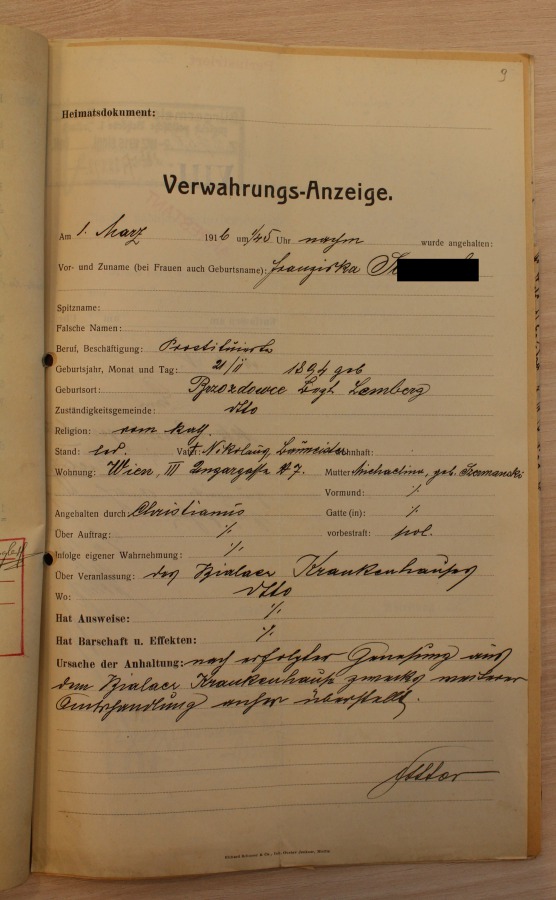 9
Heimatsdokument:
Verwahrungs-Anzeige.
Am 1. März 1916 um 1/45 Uhr nachm wurde angehalten:
Vor- und Zuname (bei Frauen auch Geburtsname): Franziska
Spitzname:
Falsche Namen:
Beruf, Beschäftigung: Prostituierte
Geburtsjahr, Monat und Tag: 21/II 1894 geb
Geburtsort: Brzozdowce Bez. Lemberg
Zuständigkeitsgemeinde: dtto
Religion: röm. kath.
Stand: led. Vater: † Nikolaus, Baumeister wohnhaft:
Wohnung: Wien, III Ungargasse # 7. Mutter: Michaelina, geb. Szemanski
Vormund: ./.
Angehalten durch Christianus Gatte (in): ./.
Über Auftrag: ./. vorbestraft: pol.
Infolge eigener Wahrnehmung: ./.
Über Veranlassung: des Bialaer Krankenhauses
Wo: dtto
Hat Ausweise: ./.
Hat Barschaft u. Effekten: ./.
Ursache der Anhaltung: nach erfolgter Genesung aus
dem Bialaer Krankenhause zwecks weiterer
Amtshandlung anher überstellt.